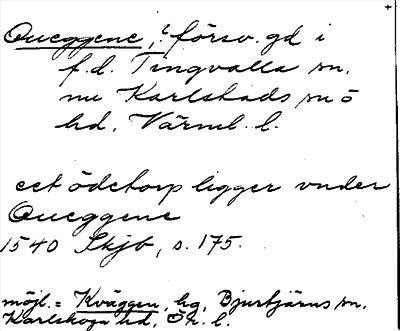 Queggene, ? försv. gd i
f.d. Tingvalla sn.
nu Karlstads sn o
hd, Värml. l.
eet ödetorp ligger vnder
Queggene
1540 Skjb, s. 175.
möjl. = Kväggen, hg, Bjurtjärns sn,
Karlskoga hd, Ör. l.